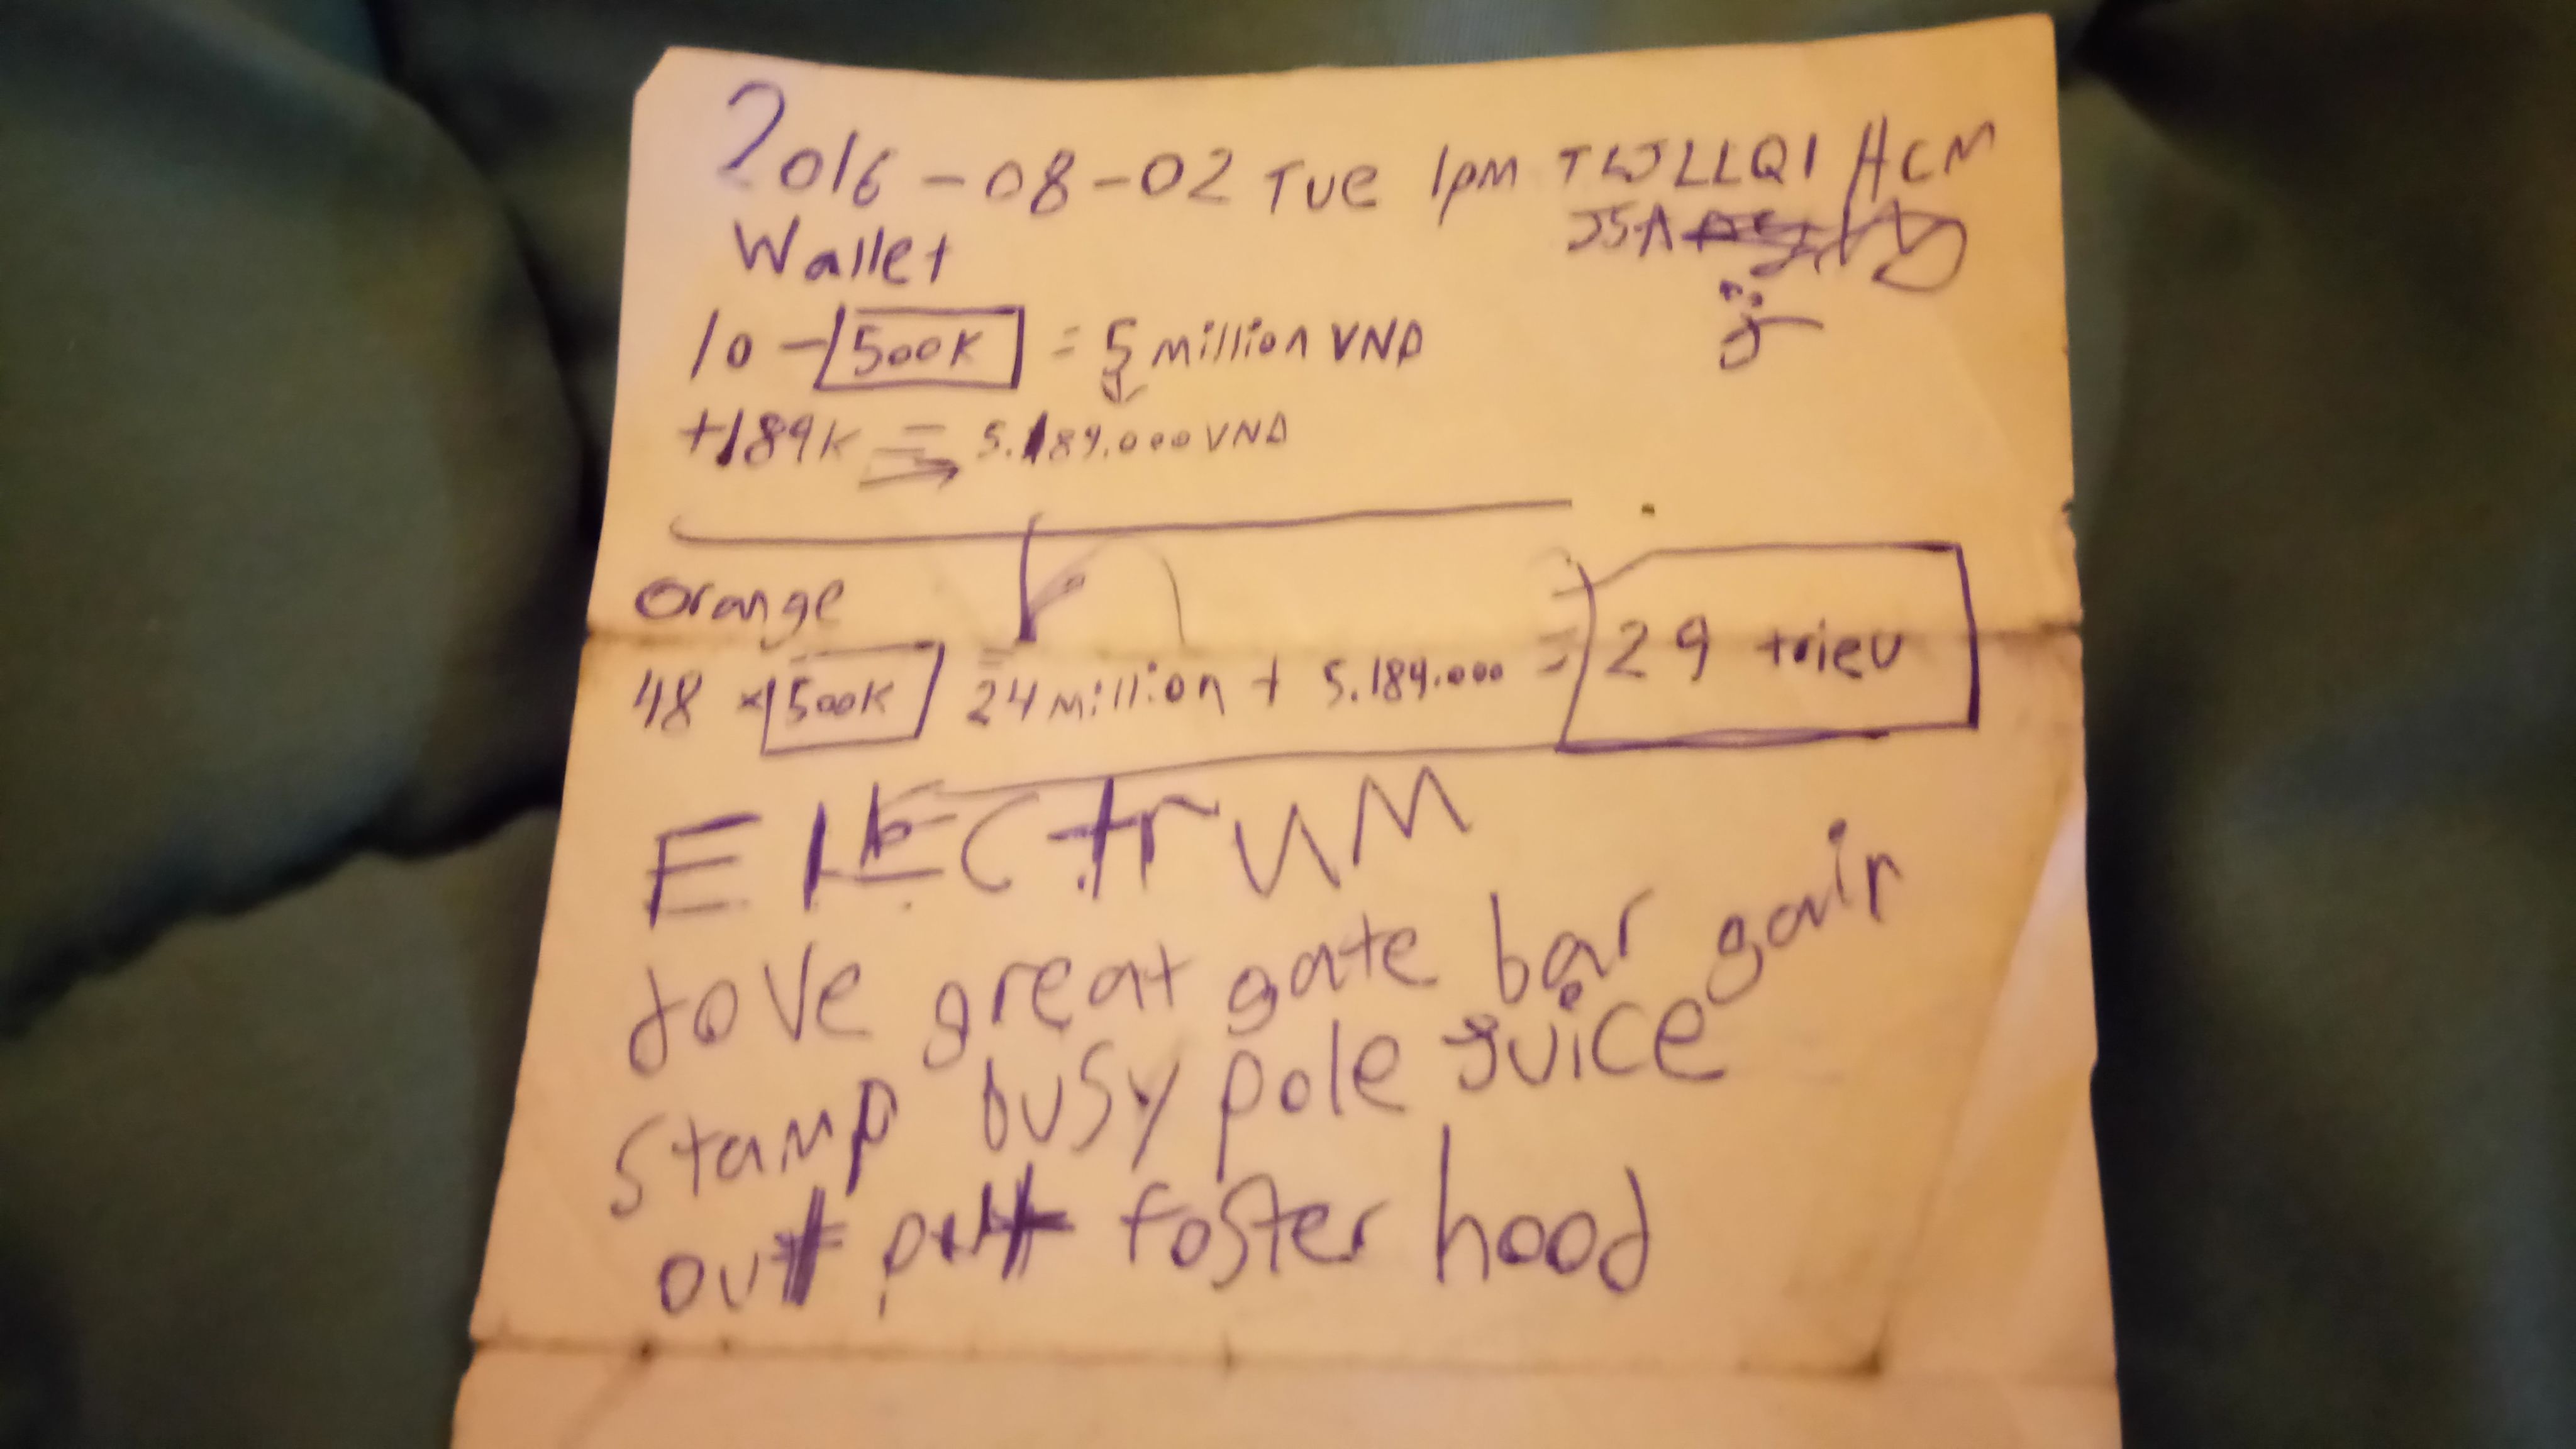 2016-08-02 Tue 1pm TWJLLQ1 HCM
Wallet JSA
10 - 500K = 5 million VND
+189K = 5.189.000 VND
Orange
48 × 500K = 24 million + 5.189.000 = 29 trieu
ElEctruM
great gate bar gain
stamp busy pole juice
out put foster hood